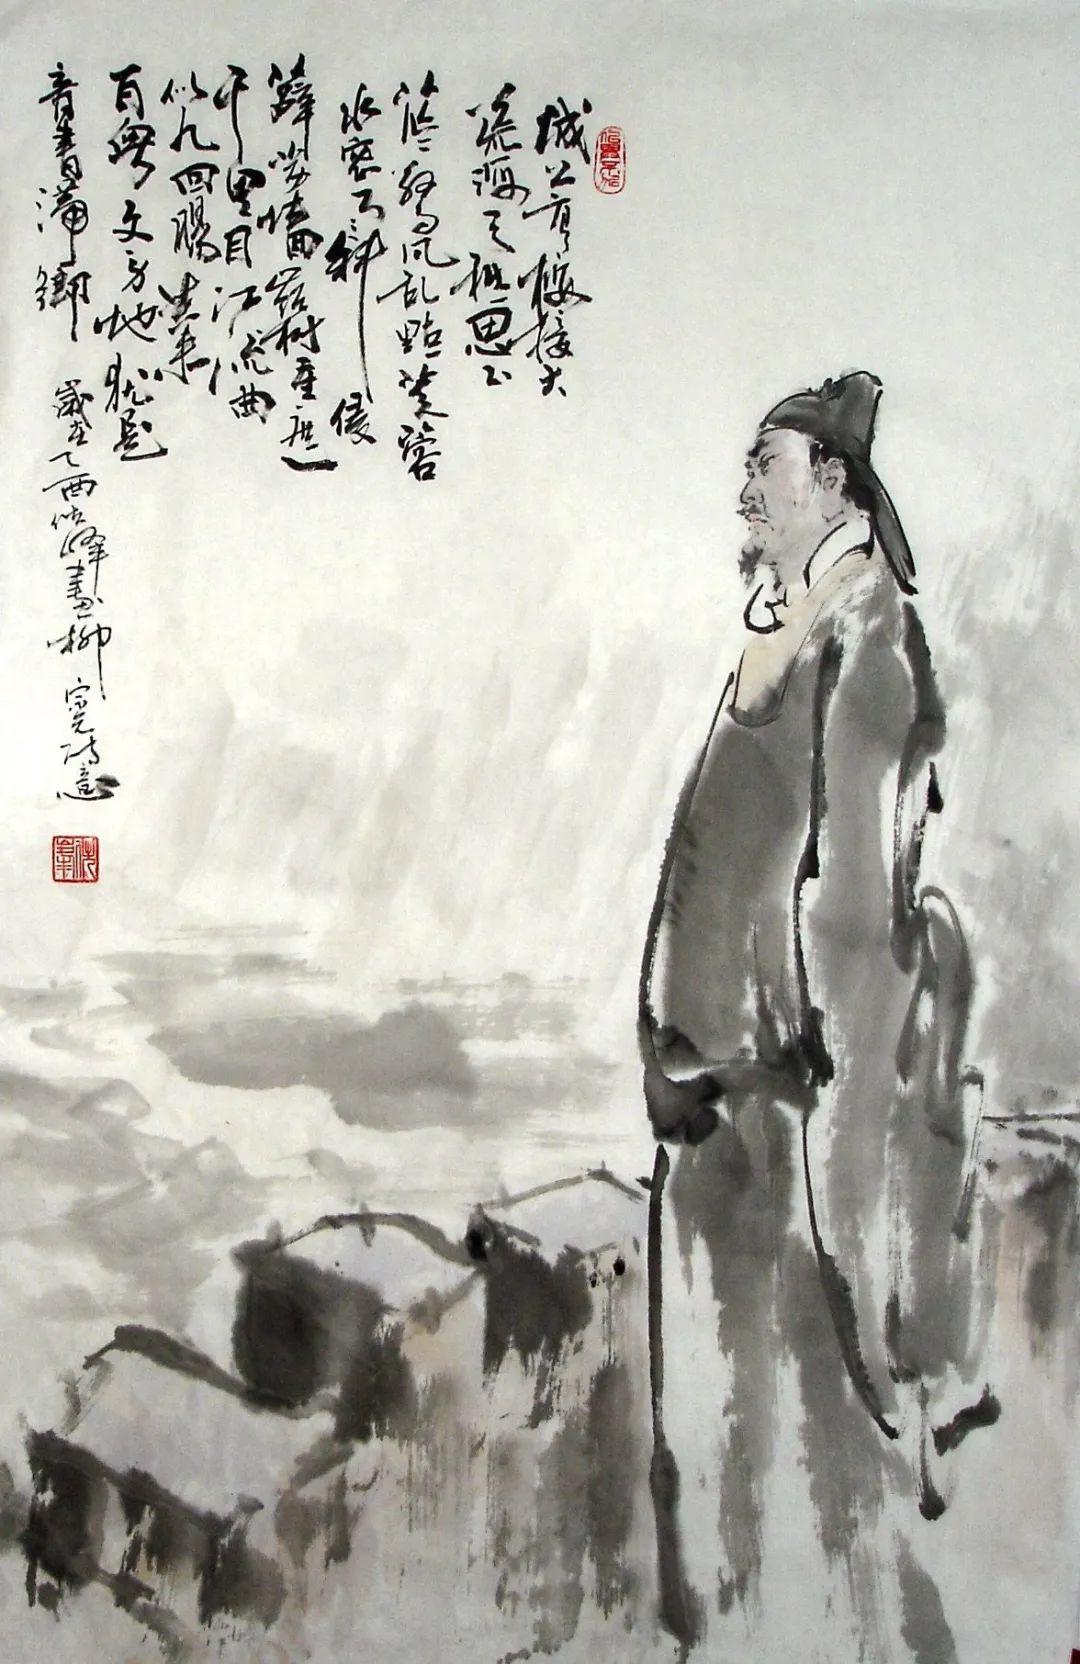 城上高楼接大
荒海天愁思正
茫茫驚风乱颭芙蓉
水密雨斜侵
薜荔墙岭树重遮
千里目江流曲
似九回腸共来
百粤文身地犹是
音書滞鄉
歲在乙酉 峰畫柳宗元诗意